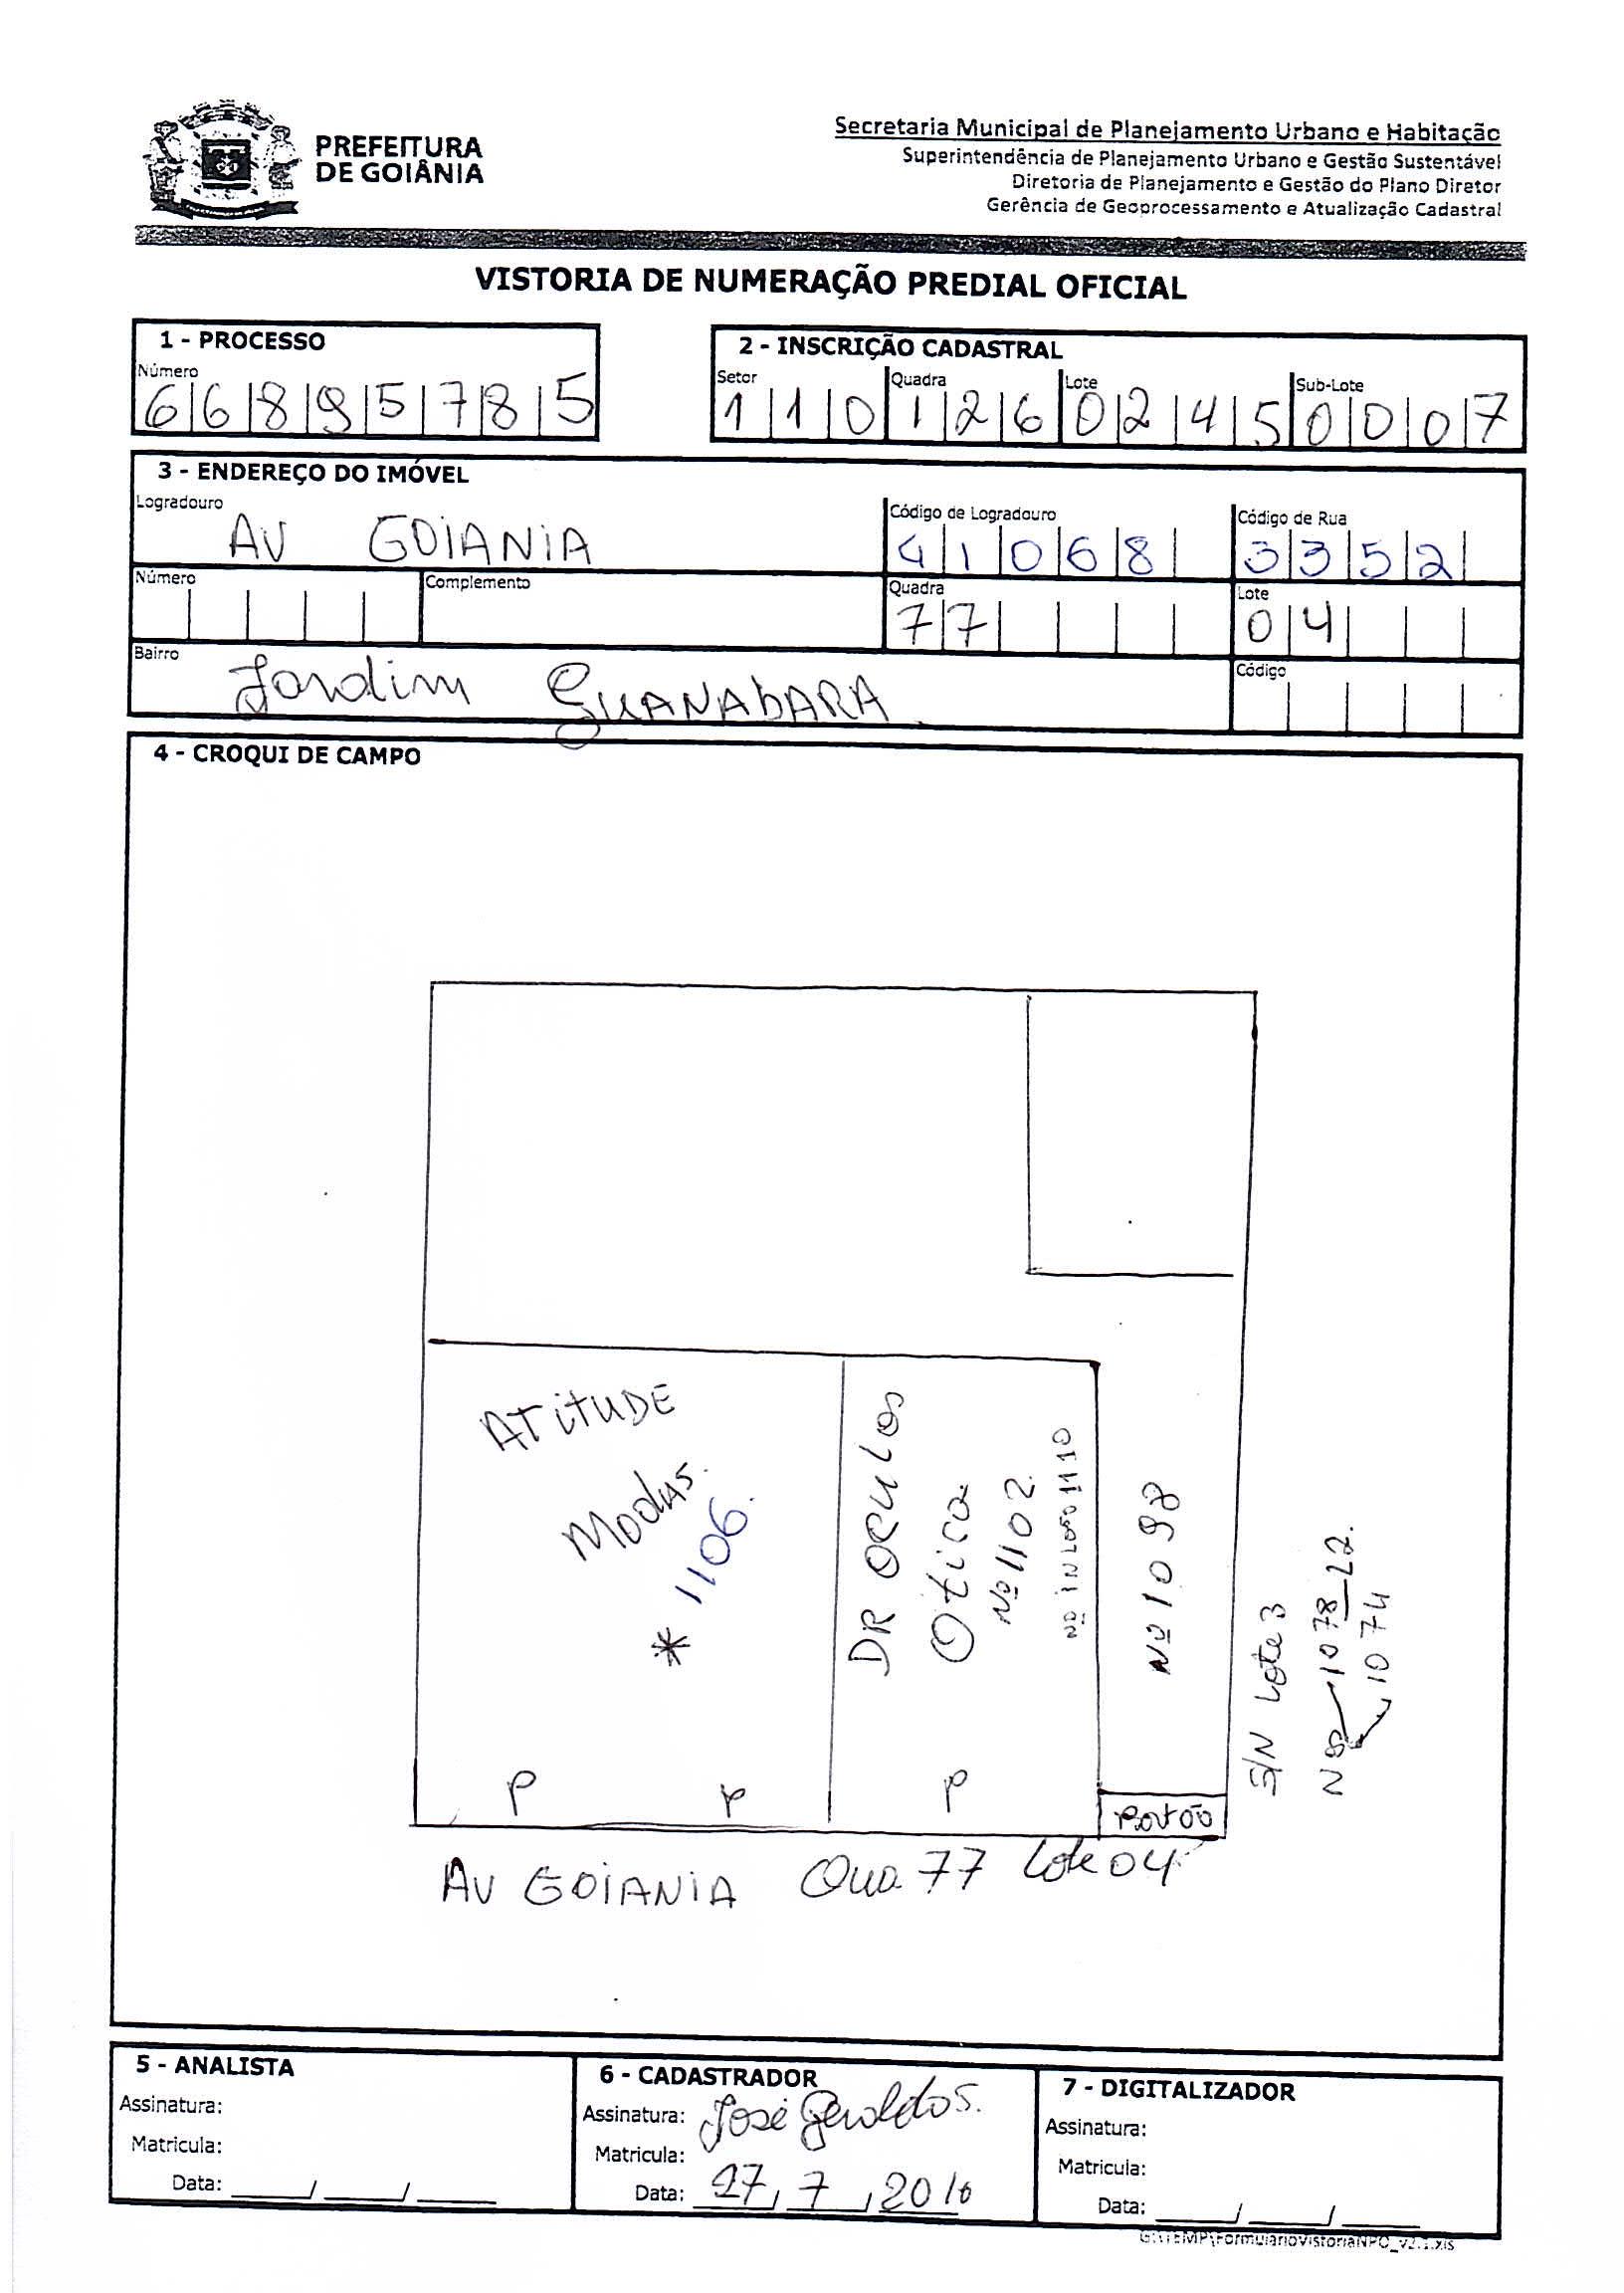 PREFEITURA
DE GOIÂNIA
Secretaria Municipal de Planejamento Urbano e Habitação
Superintendência de Planejamento Urbano e Gestão Sustentável
Diretoria de Planejamento e Gestão do Plano Diretor
Gerência de Geoprocessamento e Atualização Cadastral
VISTORIA DE NUMERAÇÃO PREDIAL OFICIAL
1 - PROCESSO
Número
66895785
2 - INSCRIÇÃO CADASTRAL
Setor Quadra Lote Sub-Lote
110 126 0245 0007
3 - ENDEREÇO DO IMÓVEL
Logradouro Código de Logradouro Código de Rua
AV GOIANIA 41068 3352
Número Complemento Quadra Lote
77 04
Bairro Código
Jardim GUANABARA
4 - CROQUI DE CAMPO
ATITUDE
Modas.
* 1106.
DR OCULOS
Otica
Nº 1102.
Nº IN LOCO 1110
Nº 1098
S/N Lote 3
1078 22.
1074
P P P
Portão
AV GOIANIA Qua. 77 Lote 04
5 - ANALISTA
Assinatura:
Matricula:
Data: ____/____/____
6 - CADASTRADOR
Assinatura: José Geraldo S.
Matricula:
Data: 27/7/2016
7 - DIGITALIZADOR
Assinatura:
Matricula:
Data: ____/____/____
G:\TEMP\FormularioVistoriaNPO_v2.1.xls